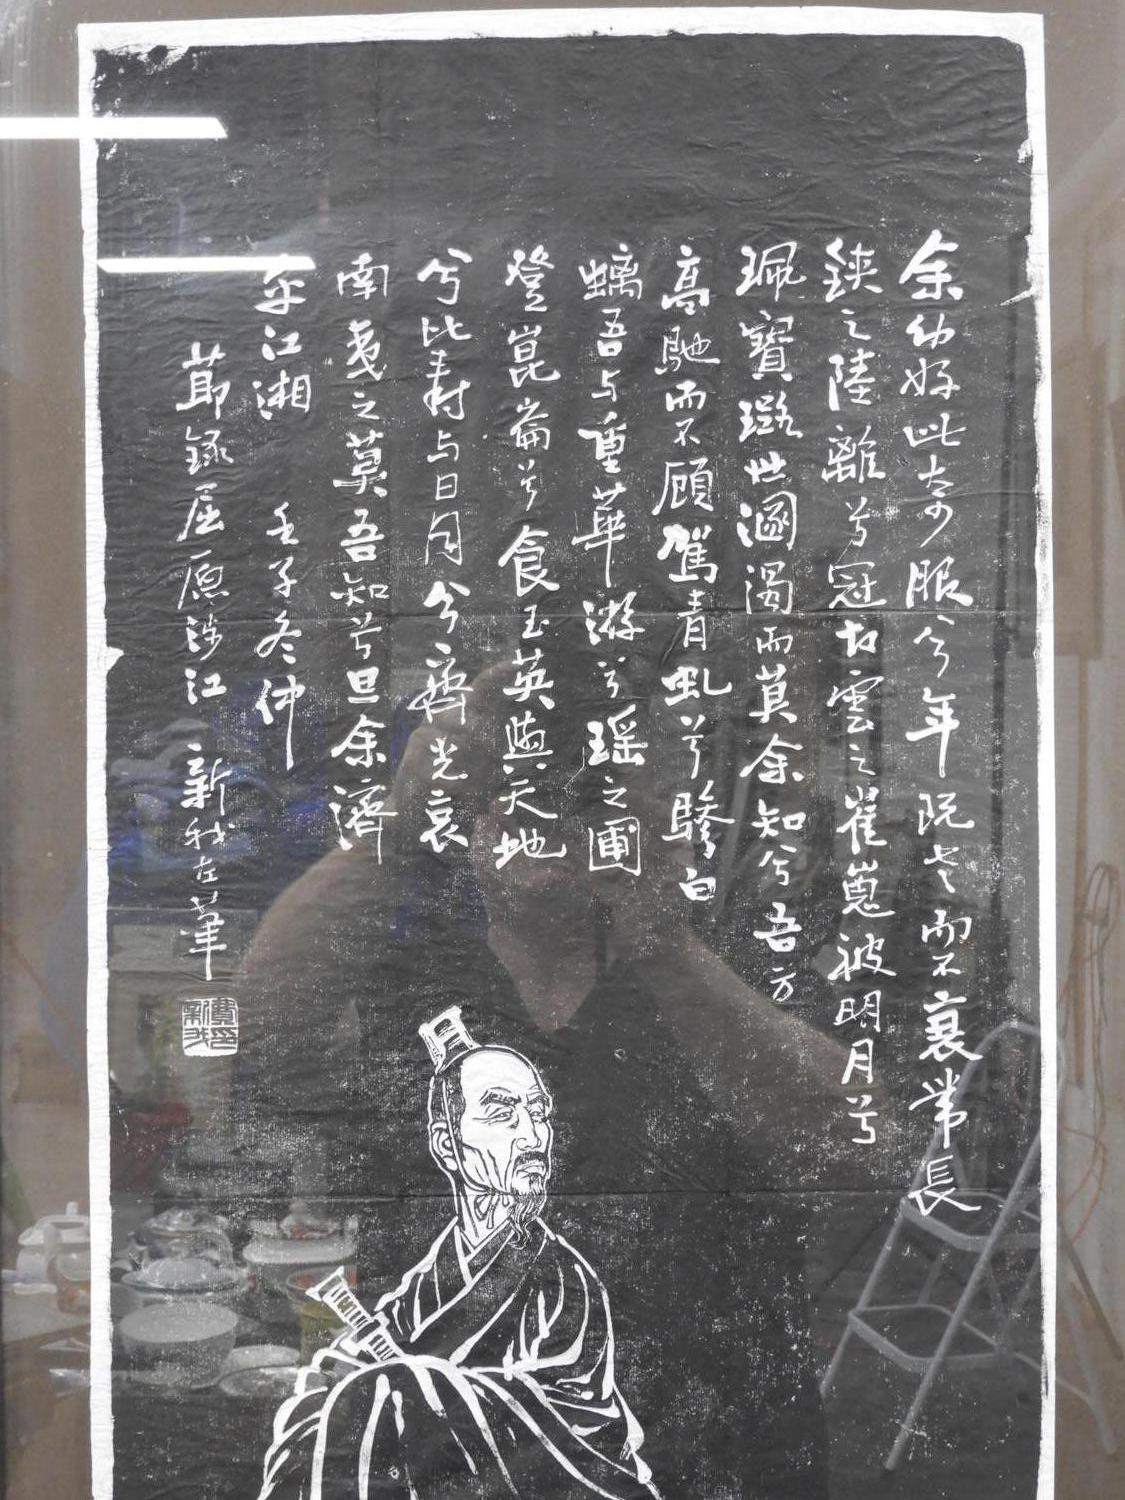 余幼好此奇服兮年既老而不衰帶長
鋏之陸離兮冠切雲之崔嵬被明月兮
珮寶璐世溷濁而莫余知兮吾方
高馳而不顧駕青虬兮驂白
螭吾与重華游兮瑶之圃
登崑崙兮食玉英與天地
兮比寿与日月兮齊光哀
南夷之莫吾知兮旦余濟
乎江湘 壬子冬仲
節録屈原涉江 新我左筆
費新我印